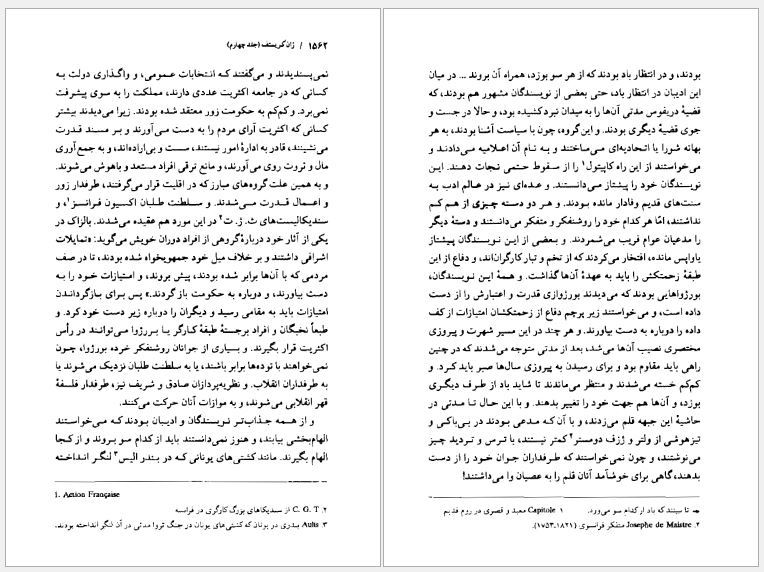 ۱۵۶۲ / ژان کریستف (جلد چهارم)
نمی‌پسندیدند و می‌گفتند که انتخابات عمومی، و واگذاری دولت به
کسانی که در جامعه اکثریت عددی دارند، مملکت را به سوی پیشرفت
نمی‌برد. و کم‌کم به حکومت زور معتقد شده بودند. زیرا می‌دیدند بیشتر
کسانی که اکثریت آرای مردم را به دست می‌آورند و بر مسند قدرت
می‌نشینند، قادر به ادارهٔ امور نیستند، سست و بی‌اراده‌اند، و به جمع‌آوری
مال و ثروت روی می‌آورند، و مانع ترقی افراد مستعد و باهوش می‌شوند.
و به همین علت گروه‌های مبارز که در اقلیت قرار می‌گرفتند، طرفدار زور
و اعمال قدرت می‌شدند. و سلطنت طلبان اکسیون فرانسز۱، و
سندیکالیست‌های ث. ژ. ت۲ در این مورد هم عقیده می‌شدند. بالزاک در
یکی از آثار خود دربارهٔ گروهی از افراد دوران خویش می‌گوید: «تمایلات
اشرافی داشتند و بر خلاف میل خود جمهویخواه شده بودند، تا در صف
مردمی که با آن‌ها برابر شده بودند، پیش بروند، و امتیازات خود را به
دست بیاورند، و دوباره به حکومت باز گردند.» پس برای بازگرداندن
امتیازات باید به مقامی رسید و دیگران را دوباره زیر دست خود کرد. و
طبعاً نخبگان و افراد برجستهٔ طبقهٔ کارگر یا بورژوا می‌توانند در رأس
اکثریت قرار بگیرند. و بسیاری از جوانان روشنفکر خرده بورژوا، چون
نمی‌خواهند با توده‌ها برابر باشند، یا به سلطنت طلبان نزدیک می‌شوند یا
به طرفداران انقلاب. و نظریه‌پردازان صادق و شریف نیز، طرفدار فلسفهٔ
قهر انقلابی می‌شوند، و به موازات آنان حرکت می‌کنند.
و از همه جذاب‌تر نویسندگان و ادیبان بودند که می‌خواستند
الهام‌بخشی بیابند، و هنوز نمی‌دانستند باید از کدام سو بروند و از کجا
الهام بگیرند. مانند کشتی‌های یونانی که در بندر الیس۳ لنگر انداخته
1. Action Française
۲. C. G. T از سندیکاهای بزرگ کارگری در فرانسه
۳. Aulis بندری در یونان که کشتی‌های یونان در جنگ تروا مدتی در آن لنگر انداخته بودند.
بودند، و در انتظار باد بودند که از هر سو بوزد، همراه آن بروند ... در میان
این ادیبان در انتظار باد، حتی بعضی از نویسندگان مشهور هم بودند، که
قضیهٔ دریفوس مدتی آن‌ها را به میدان نبرد کشیده بود، و حالا در جست و
جوی قضیهٔ دیگری بودند. و این گروه، چون با سیاست آشنا بودند، به هر
بهانه شورا یا اتحادیه‌ای می‌ساختند و به نام آن اعلامیه می‌دادند و
می‌خواستند از این راه کاپیتول۱ را از سقوط حتمی نجات دهند. این
نویسندگان خود را پیشتاز می‌دانستند. و عده‌ای نیز در عالم ادب به
سنت‌های قدیم وفادار مانده بودند. و هر دو دسته چیزی از هم کم
نداشتند، امّا هر کدام خود را روشنفکر و متفکر می‌دانستند و دستهٔ دیگر
را مدعیان عوام فریب می‌شمردند. و بعضی از این نویسندگان پیشتاز
یا واپس مانده، افتخار می‌کردند که از تخم و تبار کارگران‌اند، و دفاع از این
طبقهٔ زحمتکش را باید به عهدهٔ آن‌ها گذاشت. و همهٔ این نویسندگان،
بورژواهایی بودند که می‌دیدند بورژوازی قدرت و اعتبارش را از دست
داده است، و می‌خواستند زیر پرچم دفاع از زحمتکشان امتیازات از کف
داده را دوباره به دست بیاورند. و هر چند در این مسیر شهرت و پیروزی
مختصری نصیب آن‌ها می‌شد، بعد از مدتی متوجه می‌شدند که در چنین
راهی باید مقاوم بود و برای رسیدن به پیروزی سال‌ها صبر باید کرد. و
کم‌کم خسته می‌شدند و منتظر می‌ماندند تا شاید باد از طرف دیگری
بوزد، و آن‌ها هم جهت خود را تغییر بدهند. و با این حال تا مدتی در
حاشیهٔ این جبهه قلم می‌زدند، و با آن که مدعی بودند در بی‌باکی و
تیزهوشی از ولتر و ژزف دومستر۲ کمتر نیستند، با ترس و تردید چیز
می‌نوشتند، و چون نمی‌خواستند که طرفداران جوان خود را از دست
بدهند، گاهی برای خوشآمد آنان قلم را به عصیان وا می‌داشتند!
← تا ببینند که باد از کدام سو می‌وزد. ۱ Capitole معبد و قصری در روم قدیم
۲. Josephe de Maistre متفکر فرانسوی (۱۷۵۳.۱۸۲۱).